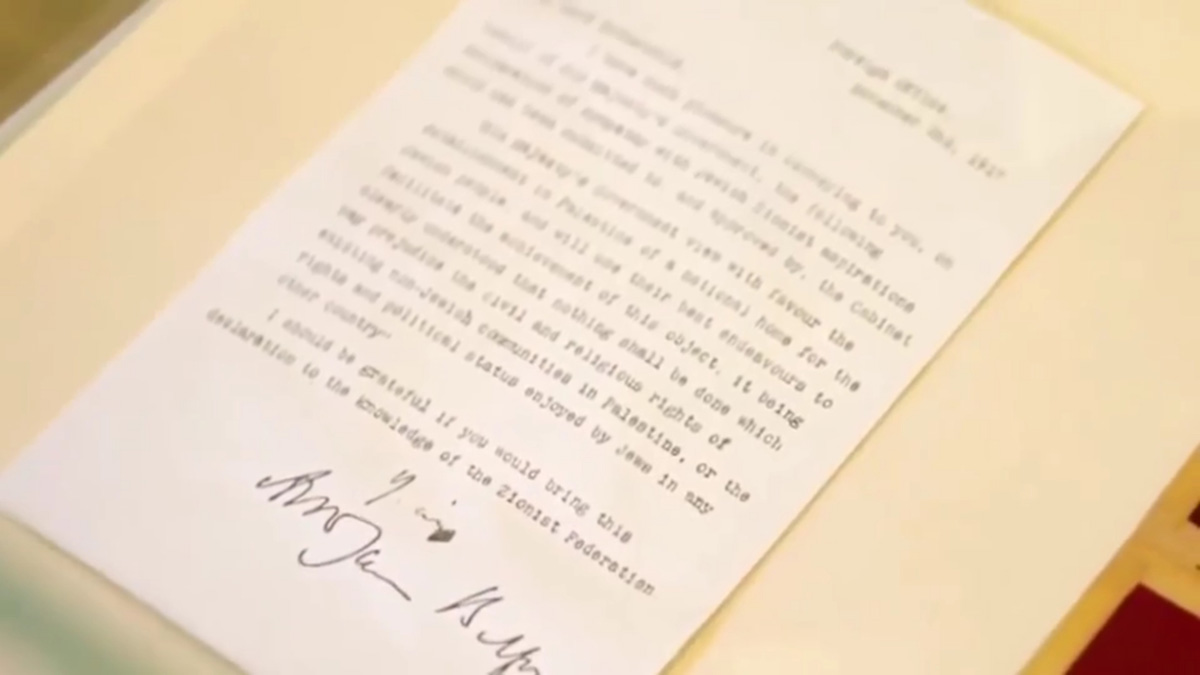 Foreign Office,
November 2nd, 1917
I have much pleasure in conveying to you, on
behalf of His Majesty's Government, the following
declaration of sympathy with Jewish Zionist aspirations
which has been submitted to, and approved by, the Cabinet
His Majesty's Government view with favour the
establishment in Palestine of a national home for the
Jewish people, and will use their best endeavours to
facilitate the achievement of this object, it being
clearly understood that nothing shall be done which
may prejudice the civil and religious rights of
existing non-Jewish communities in Palestine, or the
rights and political status enjoyed by Jews in any
other country"
I should be grateful if you would bring this
declaration to the knowledge of the Zionist Federation